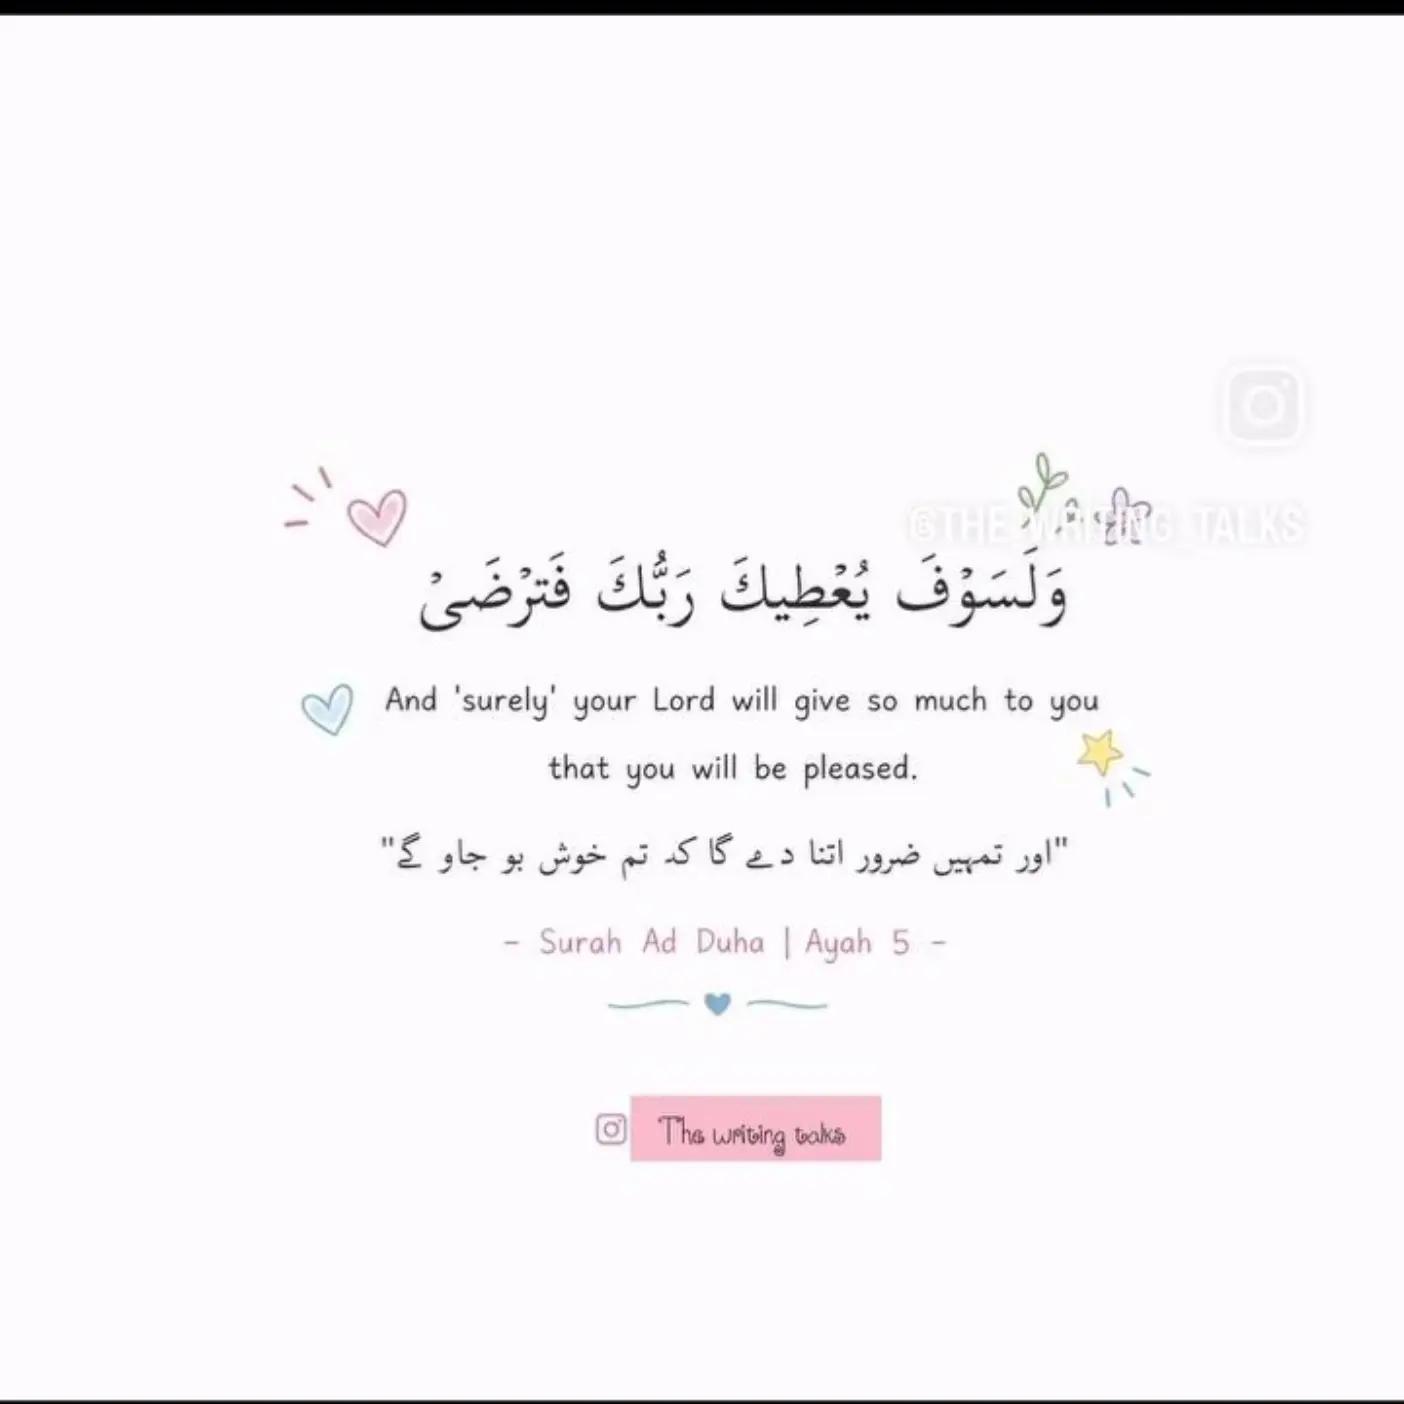 @THE_WRITING_TALKS
وَلَسَوْفَ يُعْطِيكَ رَبُّكَ فَتَرْضَىْ
And 'surely' your Lord will give so much to you
that you will be pleased.
"اور تمہیں ضرور اتنا دے گا کہ تم خوش ہو جاو گے"
- Surah Ad Duha | Ayah 5 -
The writing talks